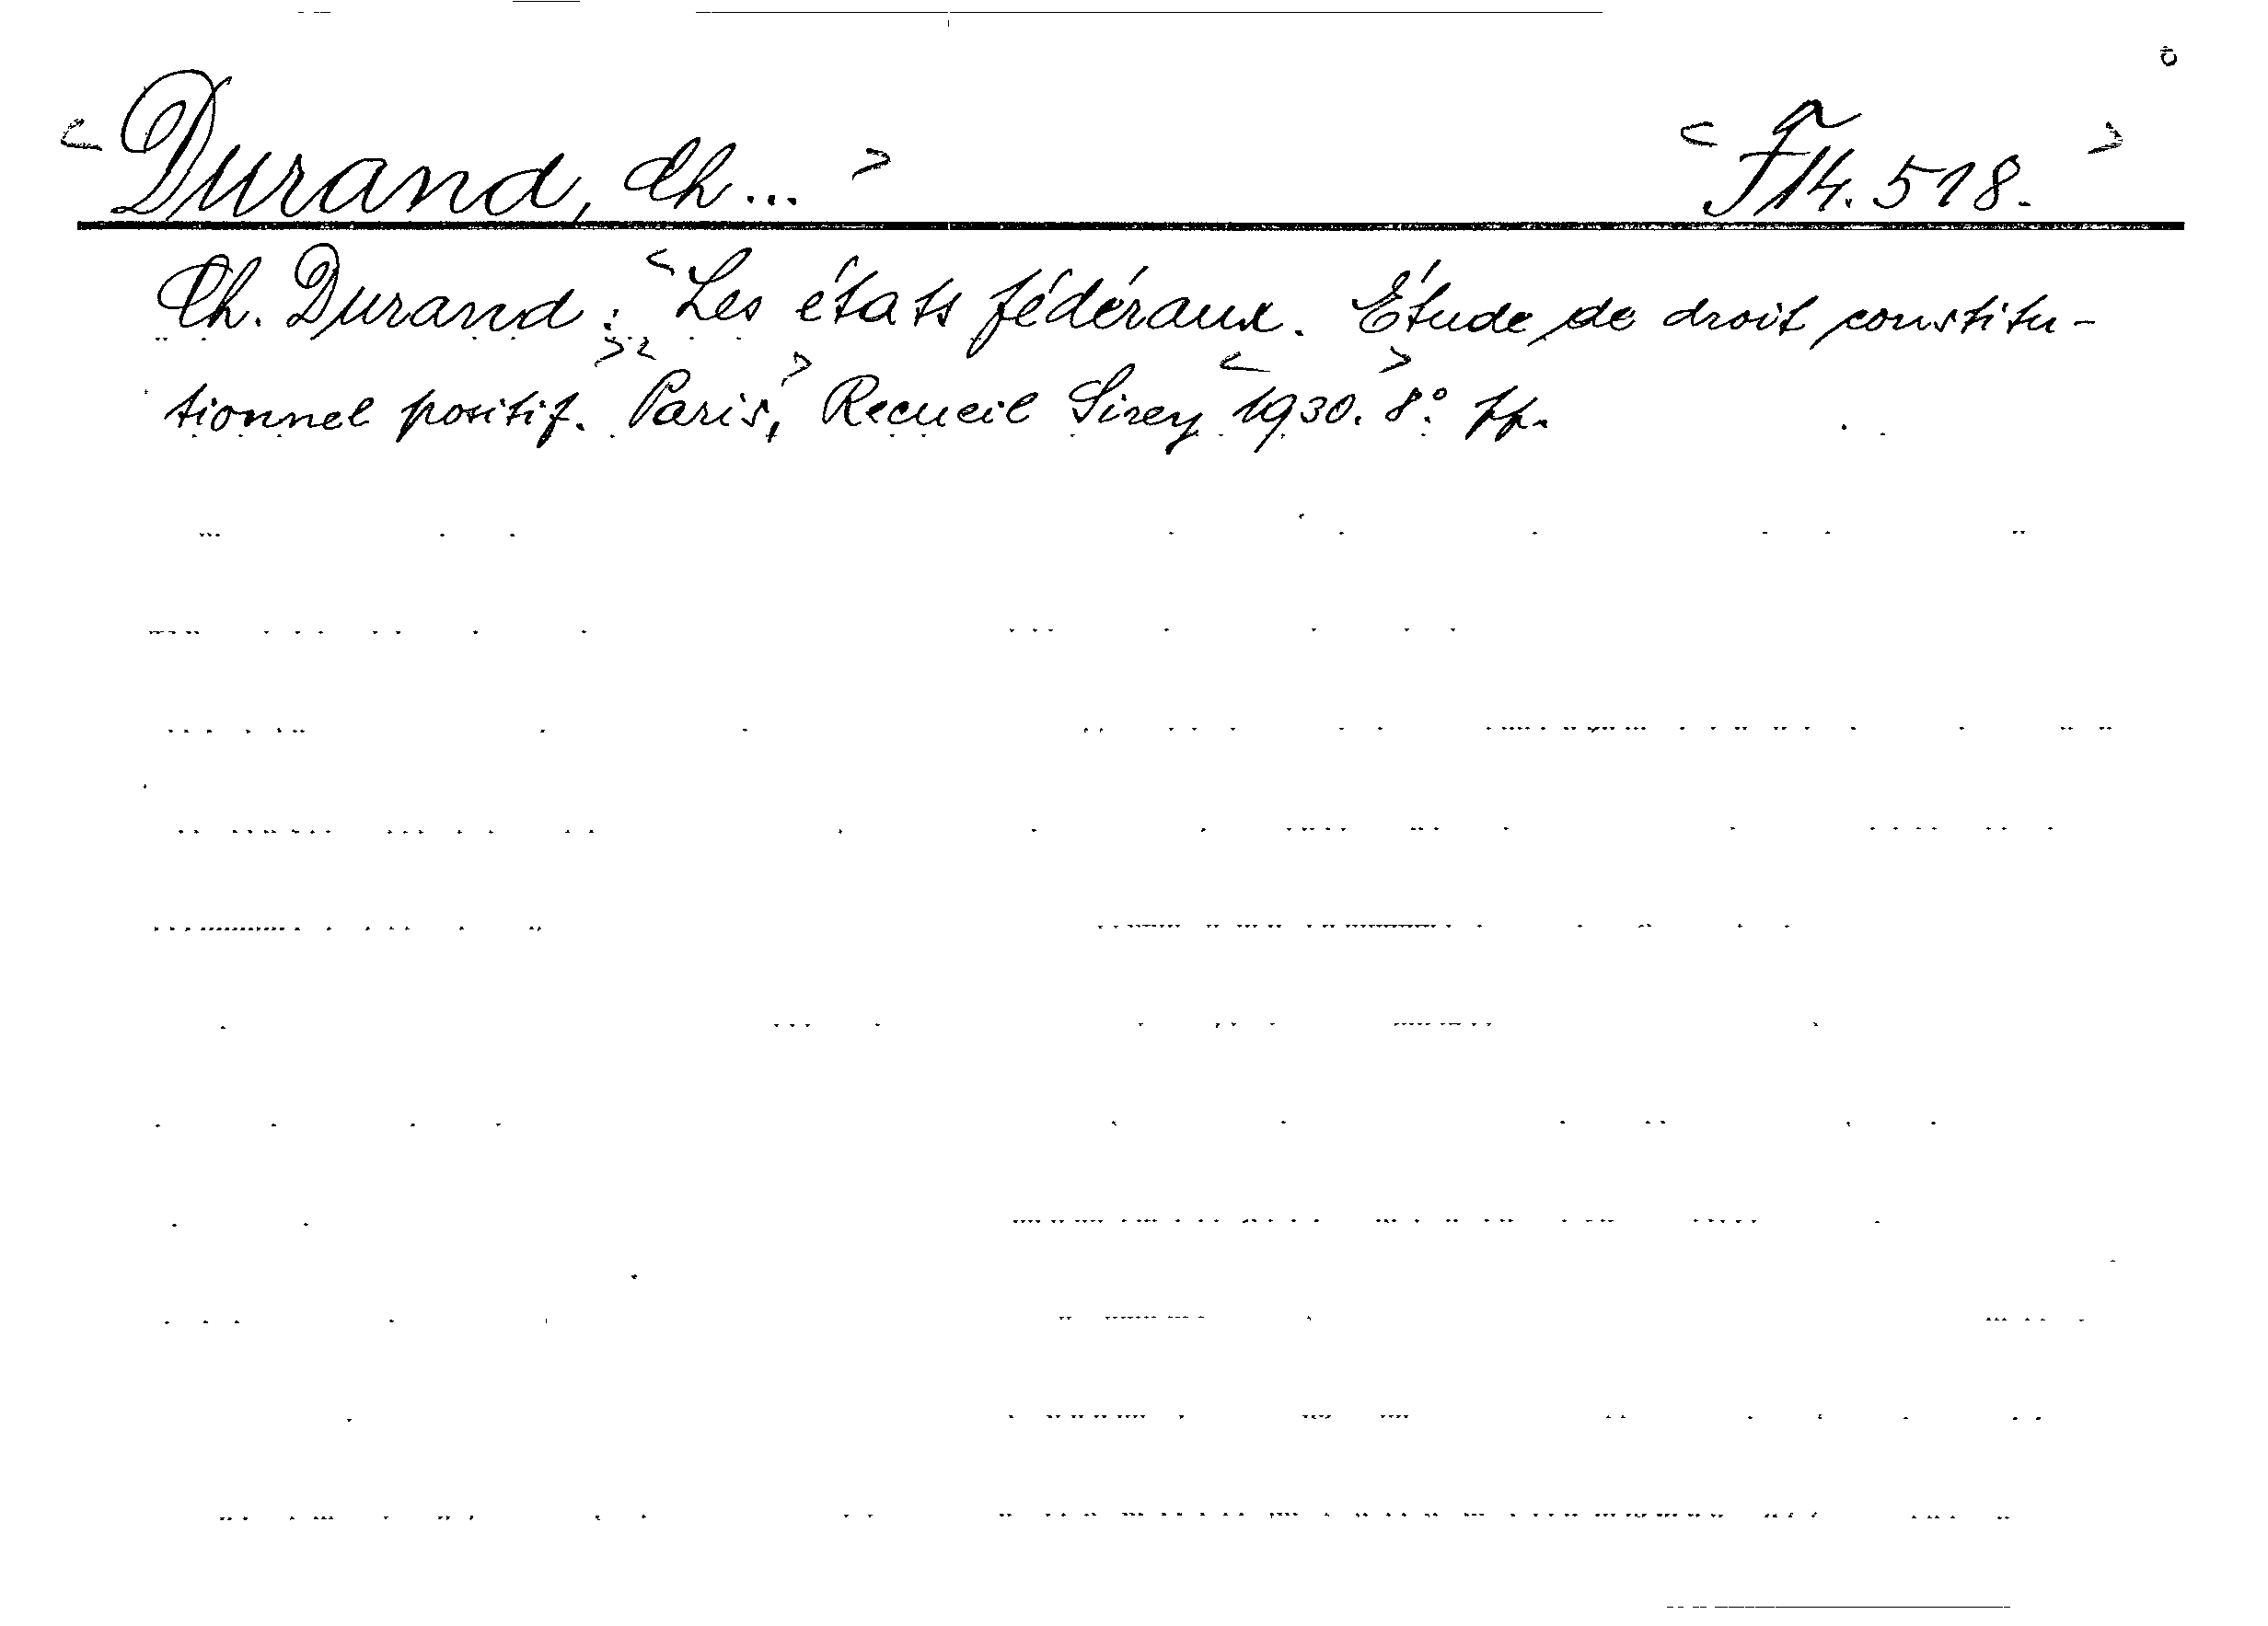 <Durand, Ch...> <F14.518.>
Ch. Durand: <Les états fédéraux. Étude de droit constitu-
tionnel positif.> <Paris,> Recueil Sirey <1930.> 8°.